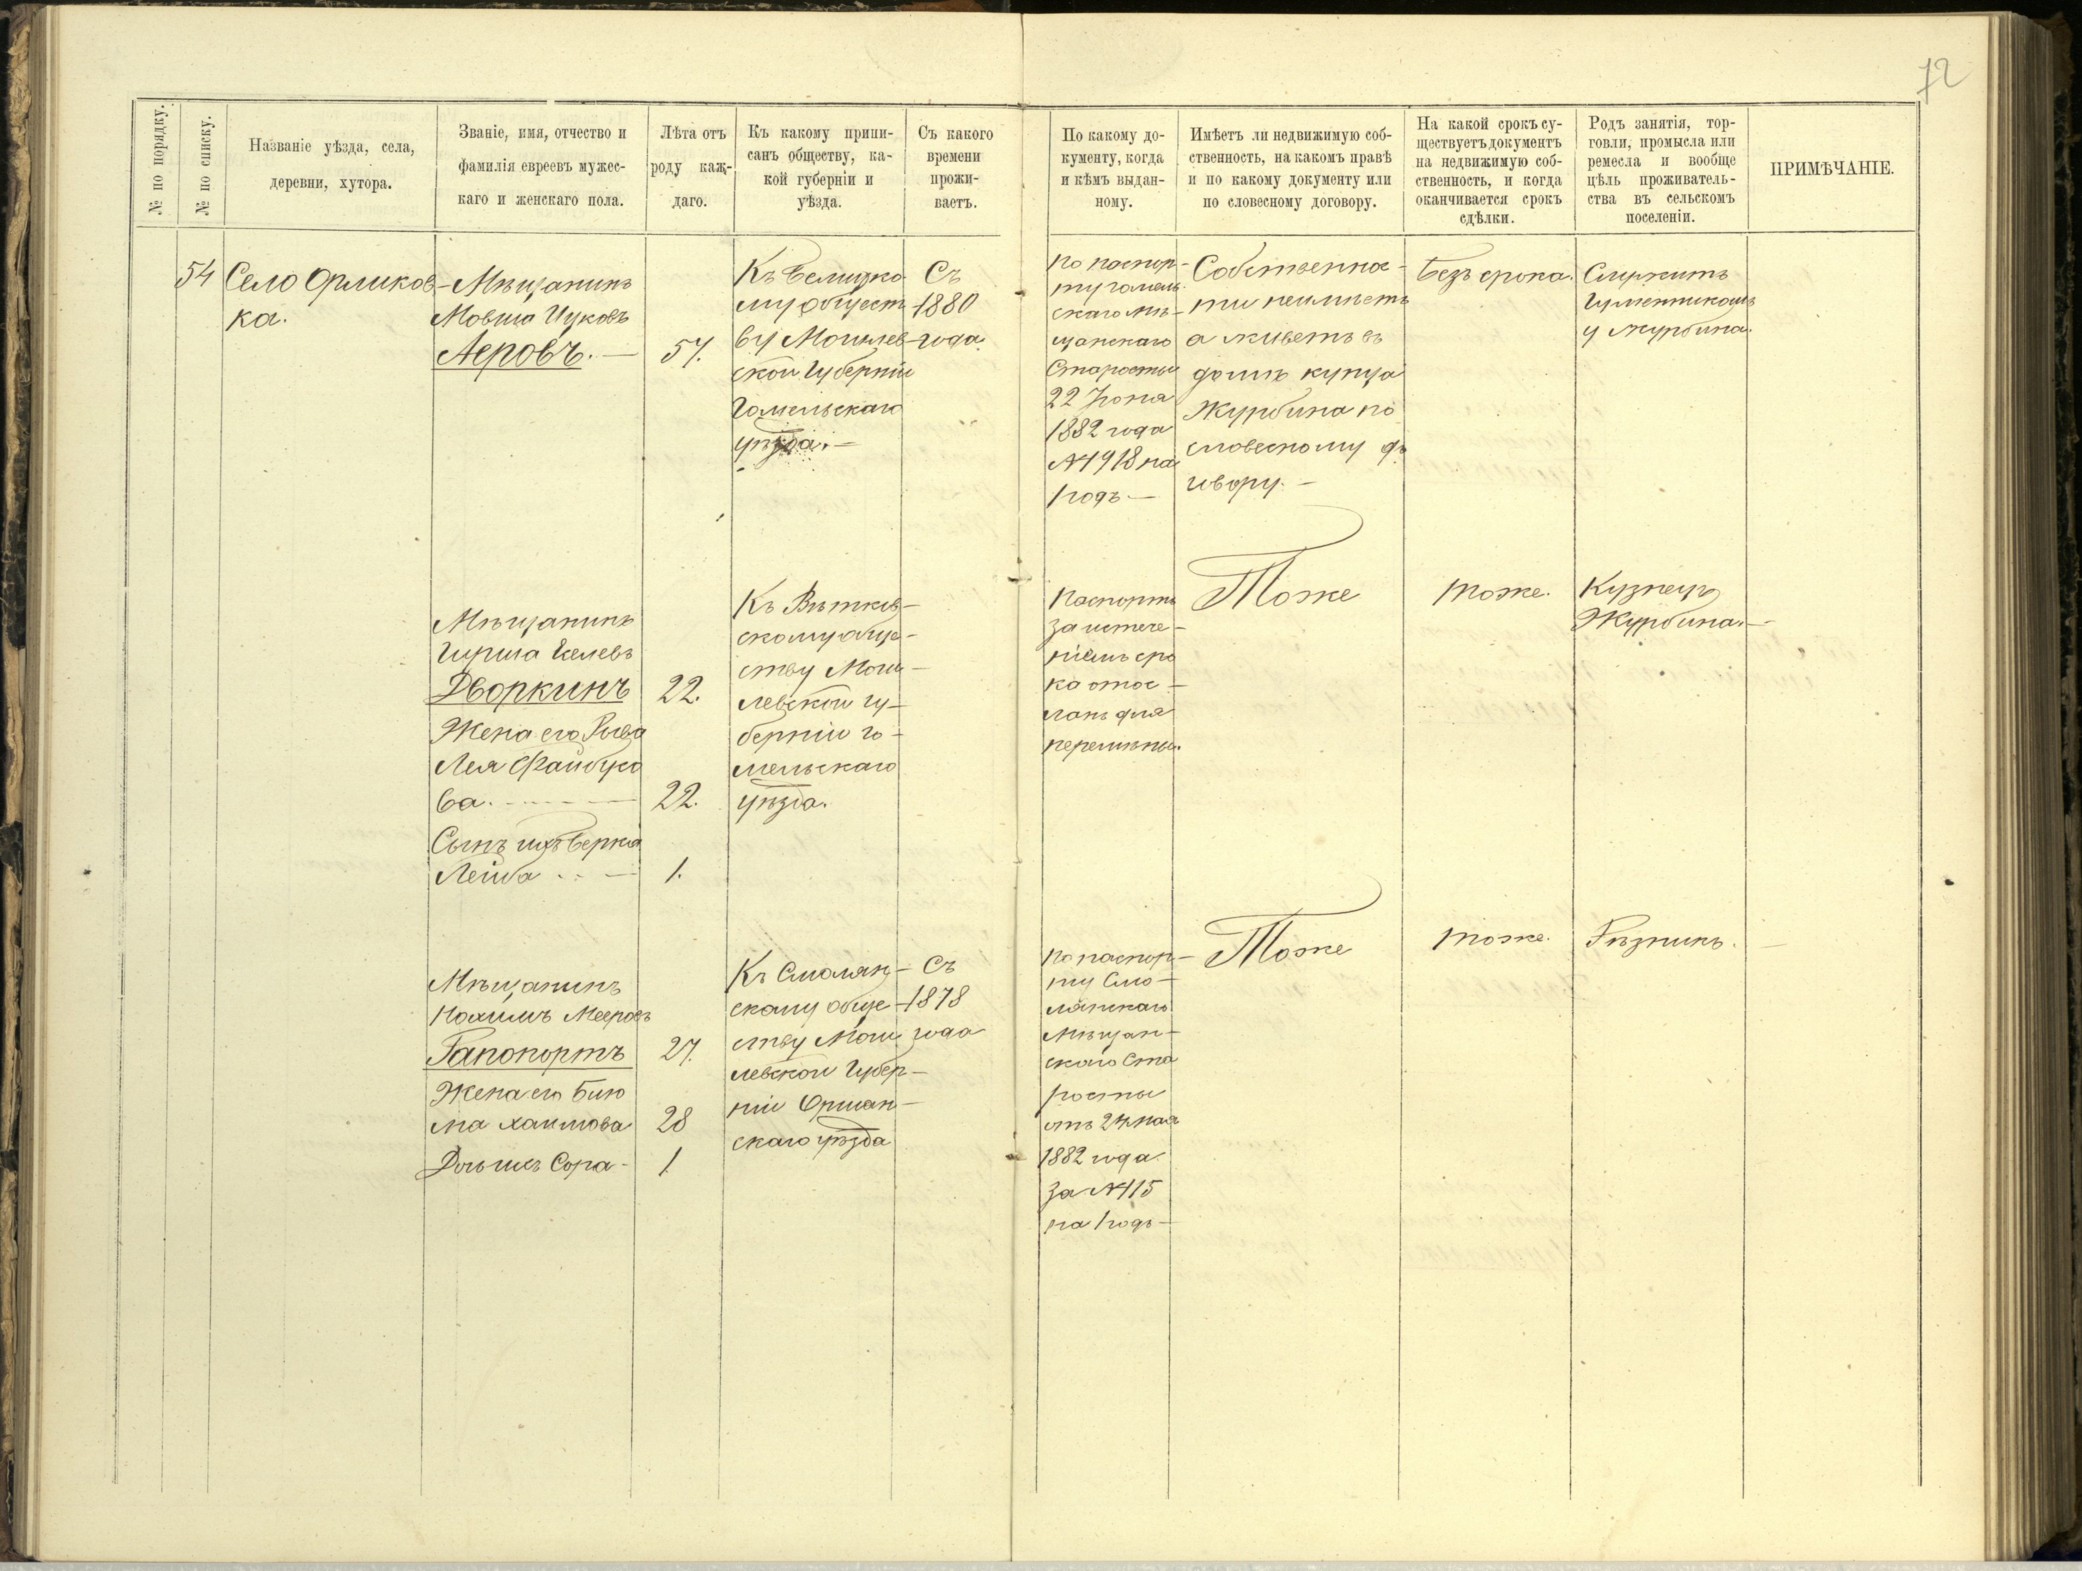 72
№ по порядку.
№ по списку.
Названіе уѣзда, села,
деревни, хутора.
Званіе, имя, отчество и
фамилія евреевъ мужес-
каго и женскаго пола.
Лѣта отъ
роду каж-
даго.
Къ какому припи-
санъ обществу, ка-
кой губерніи и
уѣзда.
Съ какого
времени
прожи-
ваетъ.
По какому до-
кументу, когда
и кѣмъ выдан-
ному.
Имѣетъ ли недвижимую соб-
ственность, на какомъ правѣ
и по какому документу или
по словесному договору.
На какой срокъ су-
ществуетъ документъ
на недвижимую соб-
ственность, и когда
оканчивается срокъ
сдѣлки.
Родъ занятія, тор-
говли, промысла или
ремесла и вообще
цѣль проживатель-
ства въ сельскомъ
поселеніи.
ПРИМѢЧАНІЕ.
54
Село Орликов-
ка.
Мѣщанинъ
Мовша Ицковъ
Аеровъ.
57.
Къ Белицко
му общест
ву Могилев-
ской Губерніи
Гомельскаго
уѣзда.
Съ
1880
года.
По паспор-
ту гомель
скаго мѣ-
щанскаго
Старосты
22 Іюня
1882 года
№ 1918 на
1 годъ.
Собственнос-
ти неимѣетъ
а живетъ въ
домѣ купца
Журбина по
словесному до
говору.
Безъ срока.
Служитъ
у Журбина.
Мѣщанинъ
Гирша
Дворкинъ
22.
Жена его Рыва
Лея Файбусо
ва.
22.
Сынъ ихъ Берка
Лейба
1.
Къ Вѣтков-
скому обще-
ству Моги-
левской гу-
берніи Го-
мельскаго
уѣзда.
Паспортъ
за истече-
ніемъ сро
ка отос-
ланъ для
перемѣны.
Тоже
тоже.
Кузнецъ
Журбина.
Мѣщанинъ
Нохимъ Мееровъ
Рапопортъ
27.
Жена его Блю
ма Хаимова
28
Дочь ихъ Сора
1
Къ Смолян-
скому обще-
ству Моги
левской Губер-
ніи Оршан-
скаго уѣзда
Съ
1878
года
По паспор-
ту Смо-
лянскаго
Мѣщан-
скаго Ста
росты
отъ 24 мая
1882 года
за № 115
на 1 годъ
Тоже
тоже.
Рѣзникъ.